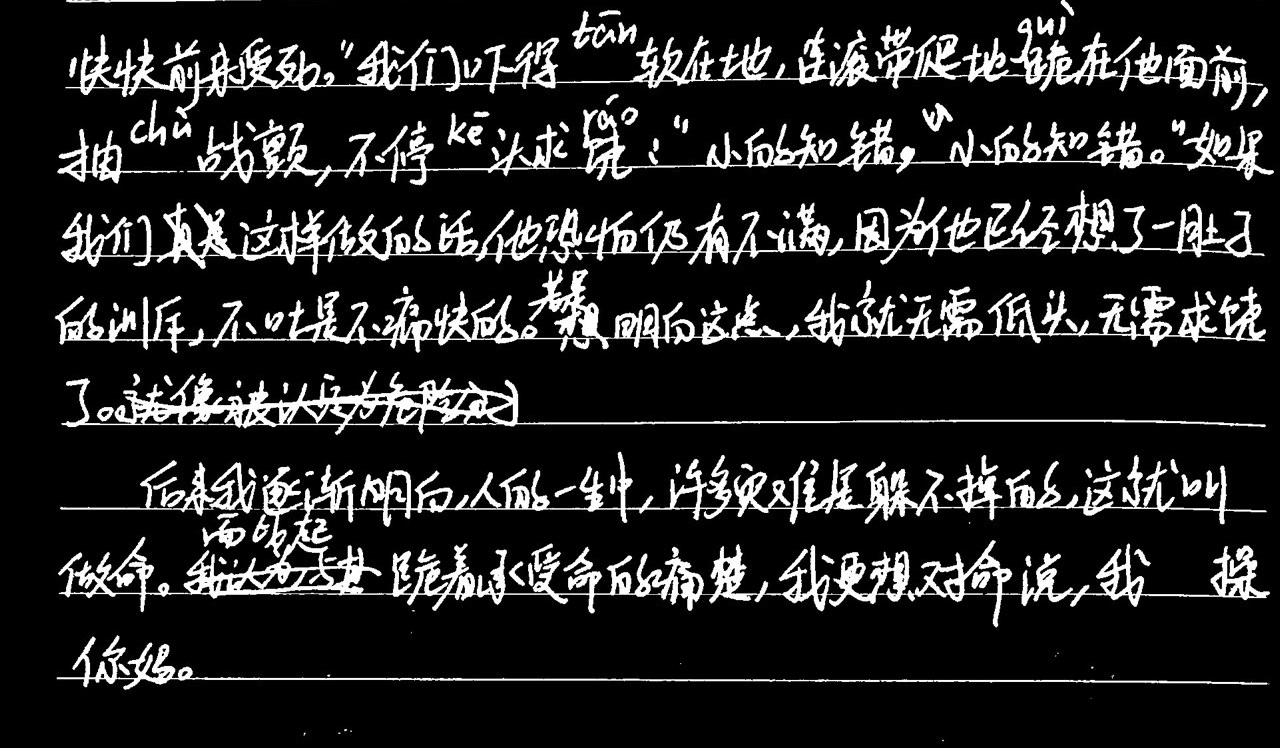 快快前来受死。"我们吓得tān软在地,连滚带爬地跪guì在他面前,
抽chù战颤,不停kē头求饶ráo:"小的知错,小的知错。"如果
我们真是这样做的话,他恐怕仍有不满,因为他已经想了一肚子
的训斥,不吐是不痛快的。若是想明白这点,我就无需低头,无需求饶
了。就像被认定为危险分子
后来我逐渐明白,人的一生中,许多灾难是躲不掉的,这就叫
而比起
做命。我认为与其跪着承受命的痛楚,我更想对命说,我 操
你妈。